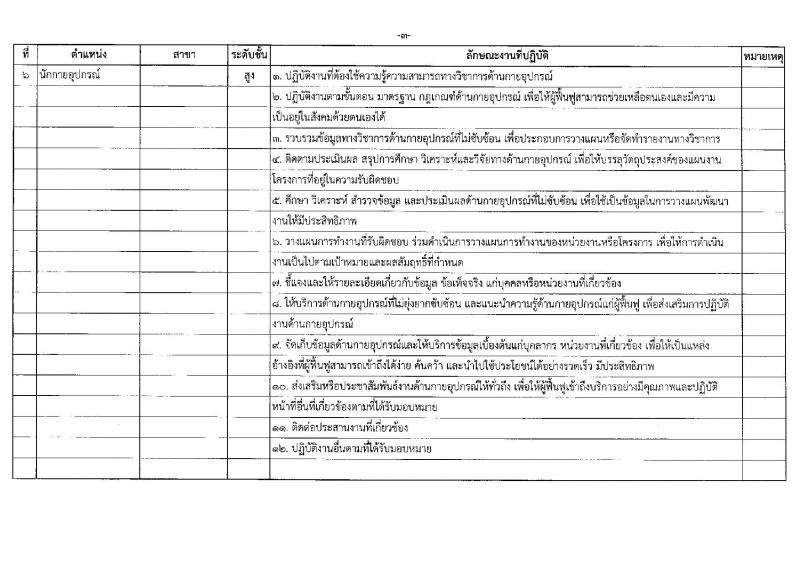 -๓-
ที่ ตำแหน่ง สาขา ระดับชั้น ลักษณะงานที่ปฏิบัติ หมายเหตุ
๖ นักกายอุปกรณ์ สูง ๑. ปฏิบัติงานที่ต้องใช้ความรู้ความสามารถทางวิชาการด้านกายอุปกรณ์
๒. ปฏิบัติงานตามขั้นตอน มาตรฐาน กฎเกณฑ์ด้านกายอุปกรณ์ เพื่อให้ผู้ฟื้นฟูสามารถช่วยเหลือตนเองและมีความ
เป็นอยู่ในสังคมด้วยตนเองได้
๓. รวบรวมข้อมูลทางวิชาการด้านกายอุปกรณ์ที่ไม่ซับซ้อน เพื่อประกอบการวางแผนหรือจัดทำรายงานทางวิชาการ
๔. ติดตามประเมินผล สรุปการศึกษา วิเคราะห์และวิจัยทางด้านกายอุปกรณ์ เพื่อให้บรรลุวัตถุประสงค์ของแผนงาน
โครงการที่อยู่ในความรับผิดชอบ
๕. ศึกษา วิเคราะห์ สำรวจข้อมูล และประเมินผลด้านกายอุปกรณ์ที่ไม่ซับซ้อน เพื่อใช้เป็นข้อมูลในการวางแผนพัฒนา
งานให้มีประสิทธิภาพ
๖. วางแผนการทำงานที่รับผิดชอบ ร่วมดำเนินการวางแผนการทำงานของหน่วยงานหรือโครงการ เพื่อให้การดำเนิน
งานเป็นไปตามเป้าหมายและผลสัมฤทธิ์ที่กำหนด
๗. ชี้แจงและให้รายละเอียดเกี่ยวกับข้อมูล ข้อเท็จจริง แก่บุคคลหรือหน่วยงานที่เกี่ยวข้อง
๘. ให้บริการด้านกายอุปกรณ์ที่ไม่ยุ่งยากซับซ้อน และแนะนำความรู้ด้านกายอุปกรณ์แก่ผู้ฟื้นฟู เพื่อส่งเสริมการปฏิบัติ
งานด้านกายอุปกรณ์
๙. จัดเก็บข้อมูลด้านกายอุปกรณ์และให้บริการข้อมูลเบื้องต้นแก่บุคลากร หน่วยงานที่เกี่ยวข้อง เพื่อให้เป็นแหล่ง
อ้างอิงที่ผู้ฟื้นฟูสามารถเข้าถึงได้ง่าย ค้นคว้า และนำไปใช้ประโยชน์ได้อย่างรวดเร็ว มีประสิทธิภาพ
๑๐. ส่งเสริมหรือประชาสัมพันธ์งานด้านกายอุปกรณ์ให้ทั่วถึง เพื่อให้ผู้ฟื้นฟูเข้าถึงบริการอย่างมีคุณภาพและปฏิบัติ
หน้าที่อื่นที่เกี่ยวข้องตามที่ได้รับมอบหมาย
๑๑. ติดต่อประสานงานที่เกี่ยวข้อง
๑๒. ปฏิบัติงานอื่นตามที่ได้รับมอบหมาย